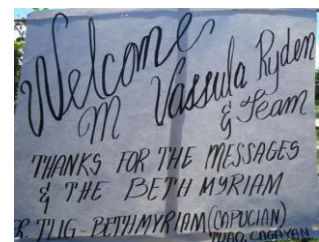 Welcome
M Vassula Ryden
& Team
THANKS FOR THE MESSAGES
& THE BETH MYRIAM
R TLIG-BETHMYRIAM (CAPUCIAN)
TUAO, CAGAYAN